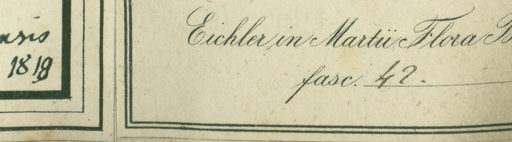 1819
Eichler in Martii Flora B
fasc. 42.